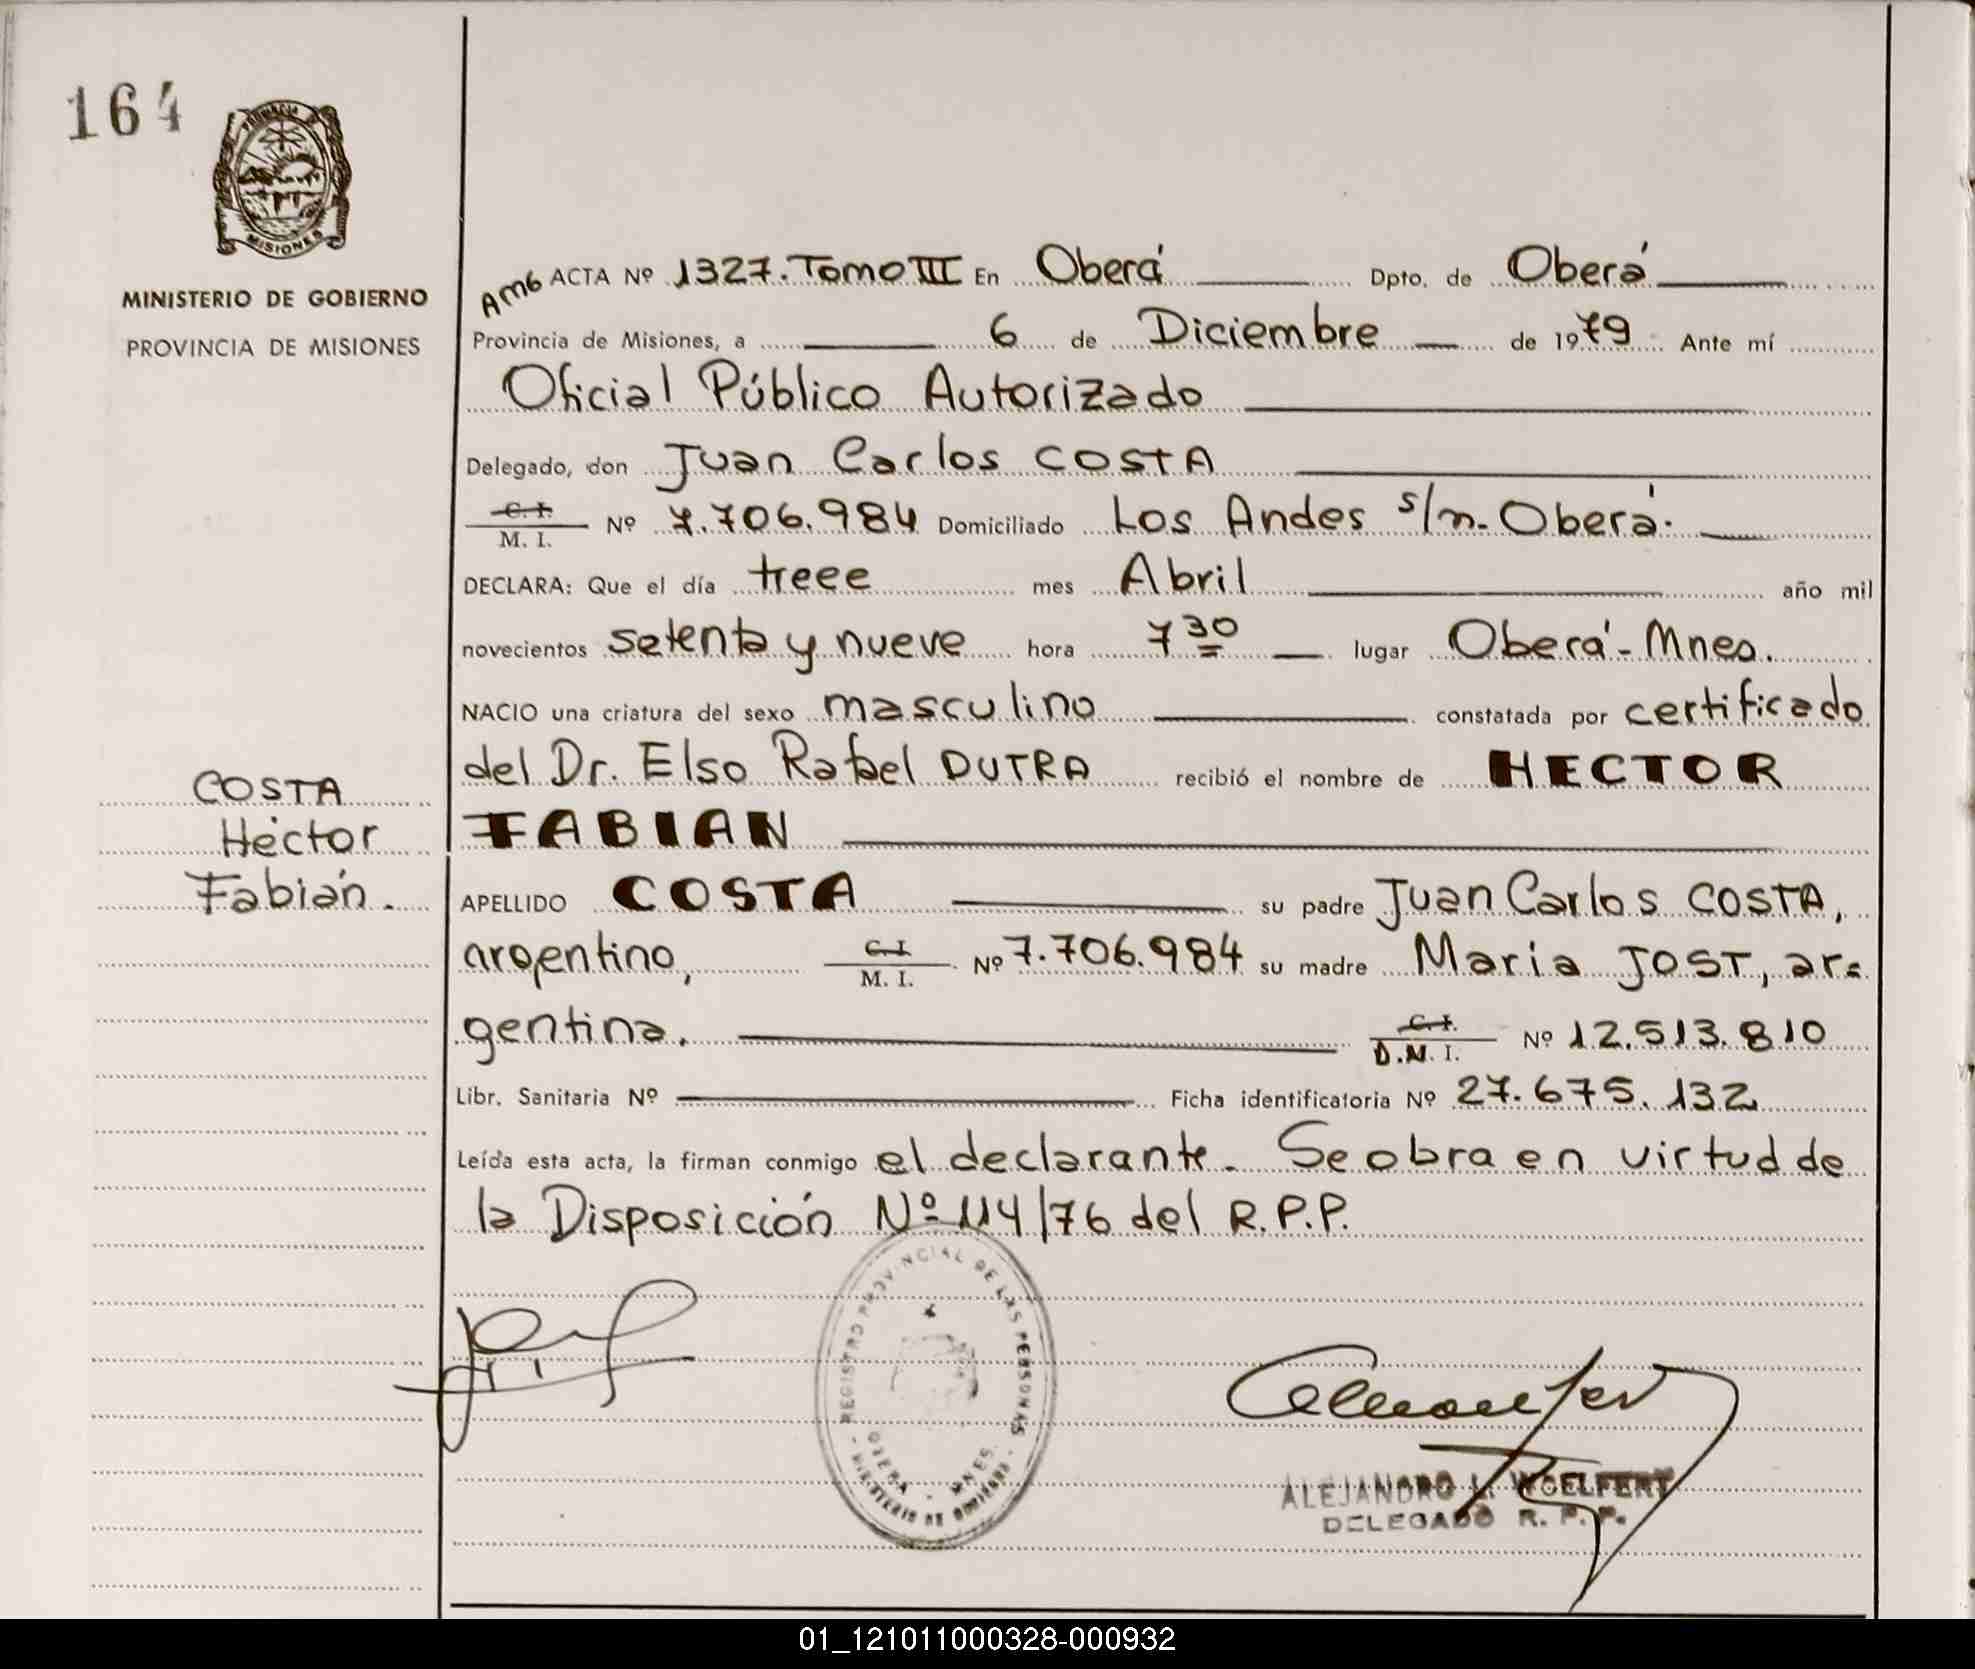 164
PROVINCIA
MISIONES
MINISTERIO DE GOBIERNO
PROVINCIA DE MISIONES
Amb ACTA Nº 1327. Tomo III En Oberá Dpto. de Oberá
Provincia de Misiones, a 6 de Diciembre de 1979 Ante mí
Oficial Público Autorizado
Delegado, don Juan Carlos COSTA
C. I.
M. I. Nº 7.706.984 Domiciliado Los Andes s/n. Oberá.
DECLARA: Que el día trece mes Abril año mil
novecientos setenta y nueve hora 7 30 lugar Oberá - Mnes.
NACIO una criatura del sexo masculino constatada por certificado
del Dr. Elso Rafael DUTRA recibió el nombre de HECTOR
FABIAN
COSTA
Héctor
Fabián.
APELLIDO COSTA su padre Juan Carlos COSTA,
argentino, C. I. M. I. Nº 7.706.984 su madre Maria JOST, ar=
gentina. C. I. D.N. I. Nº 12.513.810
Libr. Sanitaria Nº Ficha identificatoria Nº 27.675.132
Leída esta acta, la firman conmigo el declarante. Se obra en virtud de
la Disposición Nº 114/76 del R.P.P.
REGISTRO PROVINCIAL DE LAS PERSONAS
OBERA - MNES.
MINISTERIO DE GOBIERNO
ALEJANDRO L. WOELFERT
DELEGADO R. P. P.
01_121011000328-000932